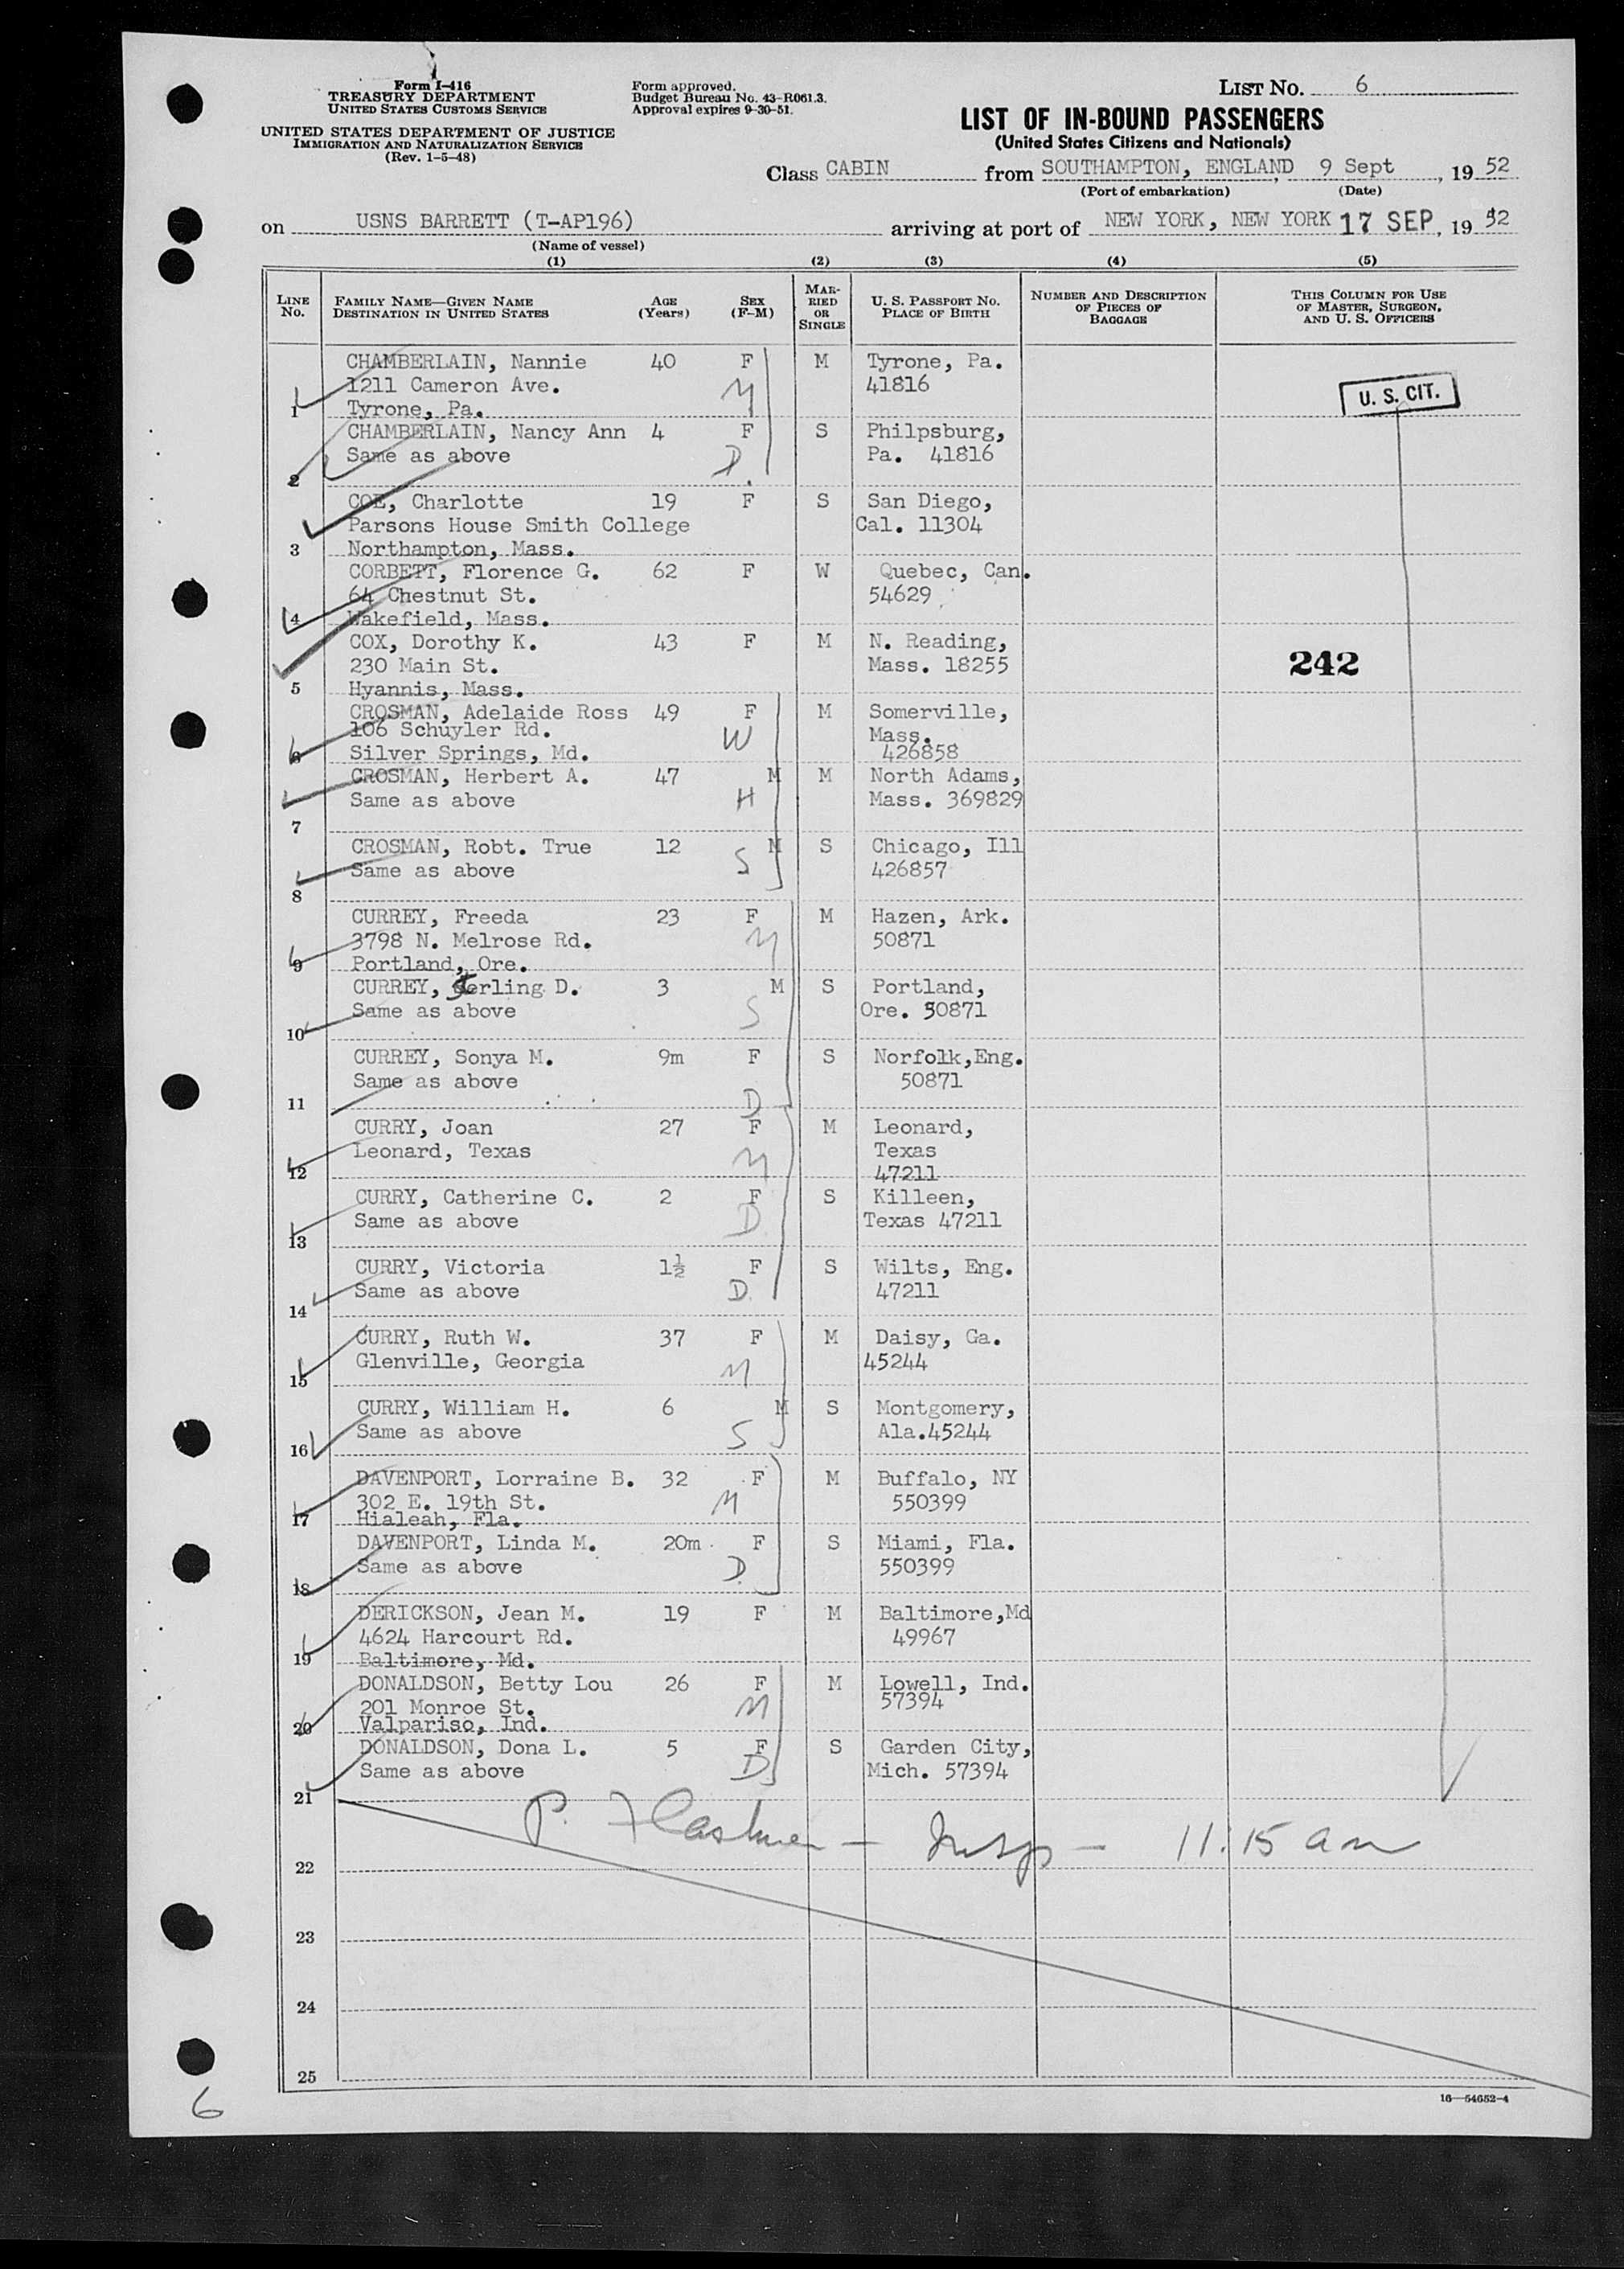 Form I-416
TREASURY DEPARTMENT
UNITED STATES CUSTOMS SERVICE
UNITED STATES DEPARTMENT OF JUSTICE
IMMIGRATION AND NATURALIZATION SERVICE
(Rev. 1-5-48)
Form approved.
Budget Bureau No. 43-R061.3.
Approval expires 9-30-51.
LIST No. 6
LIST OF IN-BOUND PASSENGERS
(United States Citizens and Nationals)
Class CABIN from SOUTHAMPTON, ENGLAND, 9 Sept, 19 52
(Port of embarkation) (Date)
on USNS BARRETT (T-AP196) arriving at port of NEW YORK, NEW YORK 17 SEP, 19 52
(Name of vessel)
(1) (2) (3) (4) (5)
LINE No. FAMILY NAME—GIVEN NAME DESTINATION IN UNITED STATES AGE (Years) SEX (F-M) MARRIED OR SINGLE U. S. PASSPORT No. PLACE OF BIRTH NUMBER AND DESCRIPTION OF PIECES OF BAGGAGE THIS COLUMN FOR USE OF MASTER, SURGEON, AND U. S. OFFICERS
CHAMBERLAIN, Nannie 40 F M Tyrone, Pa.
1211 Cameron Ave. M 41816 U. S. CIT.
1 Tyrone, Pa.
CHAMBERLAIN, Nancy Ann 4 F S Philpsburg,
Same as above D. Pa. 41816
2
COE, Charlotte 19 F S San Diego,
Parsons House Smith College Cal. 11304
3 Northampton, Mass.
CORBETT, Florence G. 62 F W Quebec, Can.
64 Chestnut St. 54629
4 Wakefield, Mass.
COX, Dorothy K. 43 F M N. Reading,
230 Main St. Mass. 18255 242
5 Hyannis, Mass.
CROSMAN, Adelaide Ross 49 F M Somerville,
106 Schuyler Rd. W Mass.
6 Silver Springs, Md. 426858
CROSMAN, Herbert A. 47 M M North Adams,
Same as above H Mass. 369829
7
CROSMAN, Robt. True 12 M S Chicago, Ill
Same as above S 426857
8
CURREY, Freeda 23 F M Hazen, Ark.
3798 N. Melrose Rd. M 50871
9 Portland, Ore.
CURREY, Sterling D. 3 M S Portland,
Same as above S Ore. 50871
10
CURREY, Sonya M. 9m F S Norfolk,Eng.
Same as above 50871
11 D
CURRY, Joan 27 F M Leonard,
Leonard, Texas M Texas
12 47211
CURRY, Catherine C. 2 F S Killeen,
Same as above D Texas 47211
13
CURRY, Victoria 1½ F S Wilts, Eng.
Same as above D. 47211
14
CURRY, Ruth W. 37 F M Daisy, Ga.
Glenville, Georgia M 45244
15
CURRY, William H. 6 M S Montgomery,
Same as above S Ala.45244
16
DAVENPORT, Lorraine B. 32 F M Buffalo, NY
302 E. 19th St. M 550399
17 Hialeah, Fla.
DAVENPORT, Linda M. 20m F S Miami, Fla.
Same as above D. 550399
18
DERICKSON, Jean M. 19 F M Baltimore,Md
4624 Harcourt Rd. 49967
19 Baltimore, Md.
DONALDSON, Betty Lou 26 F M Lowell, Ind.
201 Monroe St. M 57394
20 Valpariso, Ind.
DONALDSON, Dona L. 5 F S Garden City,
Same as above D Mich. 57394
21
P. — Insp — 11:15 am
22
23
24
25
16—54652-4
6